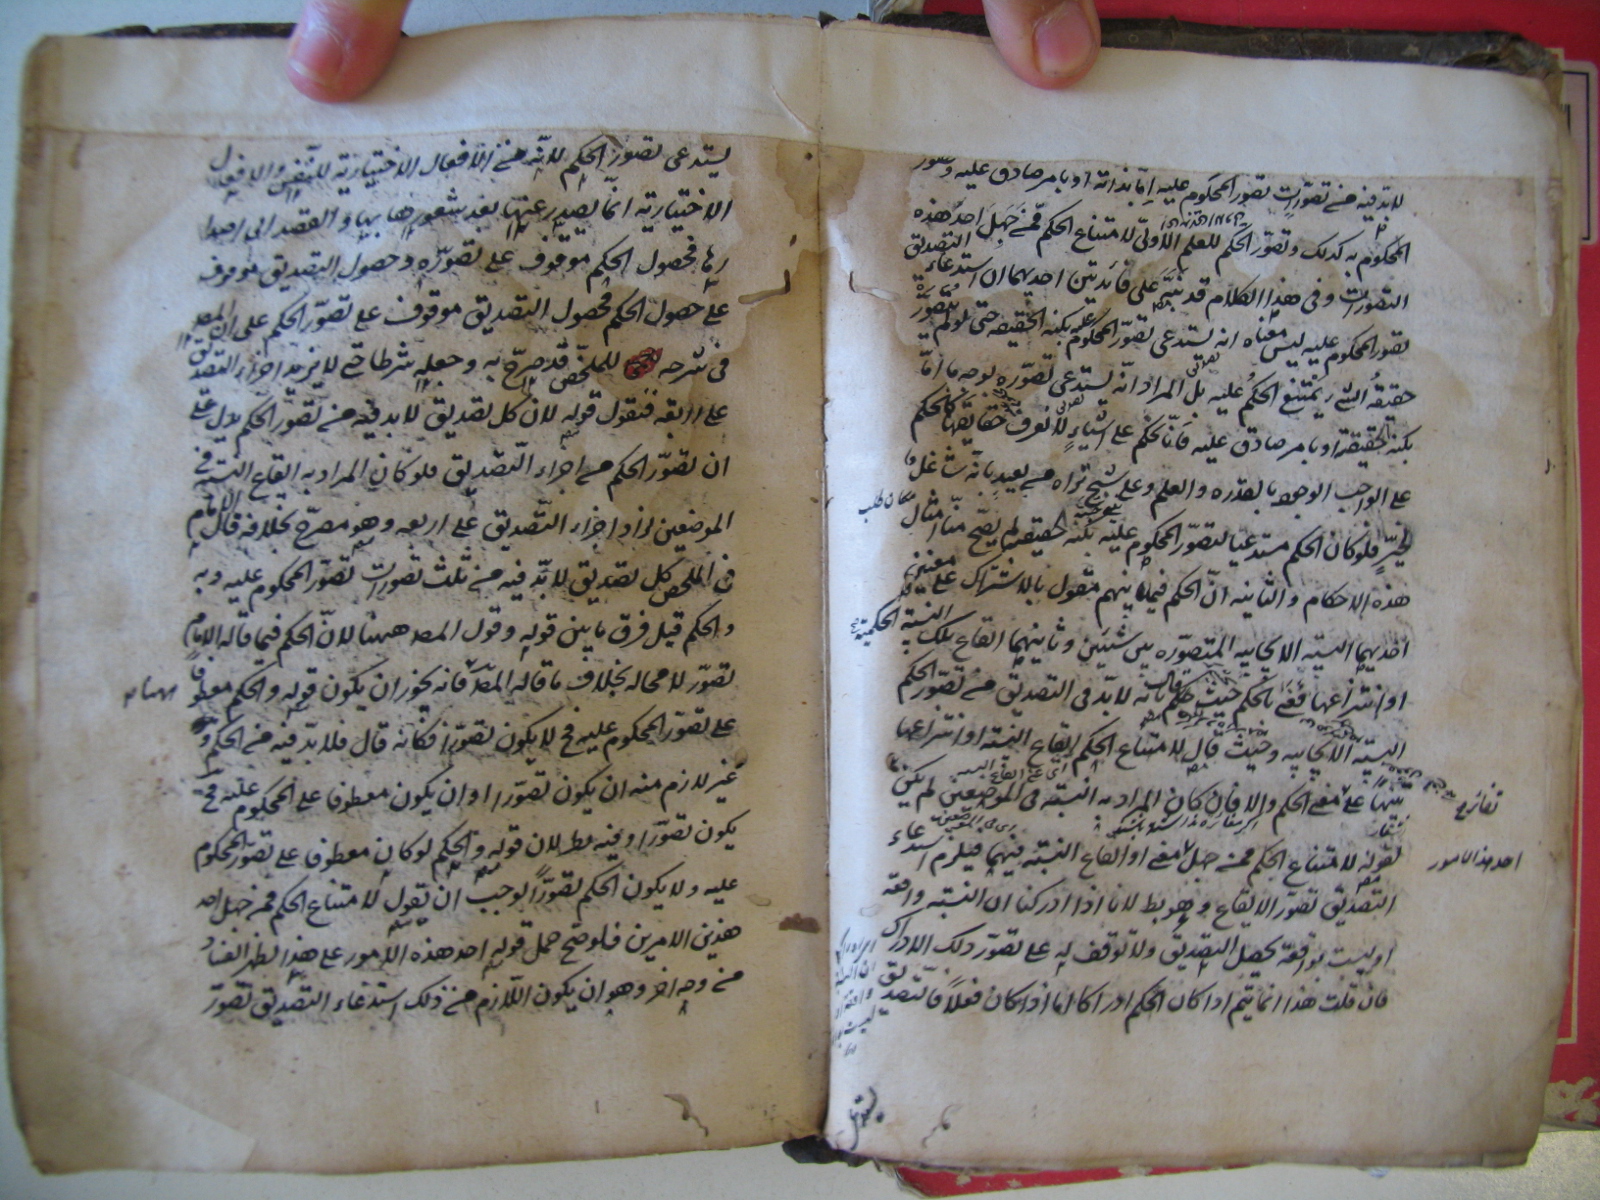 لابد فيه من تصورات تصور المحكوم عليه اما بذاته او بامر صادق عليه وتصور
المحكوم به كذلك وتصور الحكم للعلم الاولى لامتناع الحكم ممن جهل احد هذه
التصورات وفى هذا الكلام قد نبه على فائدتين احديهما ان استدعاء التصديق
تصور المحكوم عليه ليس معناه انه يستدعى تصور المحكوم عليه بكنه الحقيقة حتى لو لم يتصور
حقيقة الشئ يمتنع الحكم عليه بل المراد انه يستدعى تصوره بوجه ما اما
بكنه الحقيقة او بامر صادق عليه فانا نحكم على اشياء لا نعرف حقايقها كما نحكم
على الواجب الوجود بالقدرة والعلم وعلى شبح نراه من بعيد بانه شاغل
للحيز فلو كان الحكم مستدعيا لتصور المحكوم عليه بكنه حقيقته لم يصح منا امثال
هذه الاحكام والثانية ان الحكم فيما بينهم مقول بالاشتراك على معنيين
احديهما النسبة الايجابية المتصورة بين شيئين وثانيهما ايقاع تلك النسبة الحكمية
او انتزاعها فعنى بالحكم حيث حكم بانه لابد فى التصديق من تصور الحكم
النسبة الايجابية وحيث قال لامتناع الحكم ايقاع النسبة او انتزاعها
تنبيها على معنى الحكم والا فان كان المراد به النسبة فى الموضعين لم يكن
لقوله لامتناع الحكم ممن جهل معنى او ايقاع النسبة فيهما فيلزم استدعاء
احد هذه الامور
التصديق تصور الايقاع وهو بط لانا اذا ادركنا ان النسبة واقعة
او ليست بواقعة يحصل التصديق ولا توقف له على تصور ذلك الادراك
فان قلت هذا انما يتم اذا كان الحكم ادراكا اما اذا كان فعلا فالتصديق
يستدعى
يستدعى تصور الحكم لانه من الافعال الاختيارية للنفس والافعال
الاختيارية انما يصدر عنها بعد شعورها بها والقصد الى اصدا
رها فحصول الحكم موقوف على تصوره وحصول التصديق موقوف
على حصول الحكم فحصول التصديق موقوف على تصور الحكم على ان المص
فى شرحه للملخص قد صرح به وجعله شرطا حتى لا يزيد اجزاء التصديق
على اربعة فنقول قوله لان كل تصديق لابد فيه من تصور الحكم يدل على
ان تصور الحكم من اجزاء التصديق فلو كان المراد به ايقاع النسبة فى
الموضعين لزاد اجزاء التصديق على اربعة وهو مصرح بخلافه قال الامام
فى الملخص كل تصديق لابد فيه من ثلث تصورات تصور المحكوم عليه وبه
والحكم قيل فرق ما بين قوله وقول المص ههنا لان الحكم فيما قاله الامام
تصور لا محالة بخلاف ما قاله المص فانه يجوز ان يكون قوله والحكم معطوفا
على تصور المحكوم عليه فح لا يكون تصورا فكانه قال فلابد فيه من الحكم و
غير لازم منه ان يكون تصورا وان يكون معطوفا على المحكوم عليه فح
يكون تصورا وفيه نظر لان قوله والحكم لو كان معطوفا على تصور المحكوم
عليه ولا يكون الحكم تصورا لوجب ان يقول لامتناع الحكم ممن جهل احد
هذين الامرين فلو صح حمل قوله احد هذه الامور على هذا لظهر الفساد
من وجه اخر وهو ان يكون اللازم من ذلك استدعاء التصديق تصور